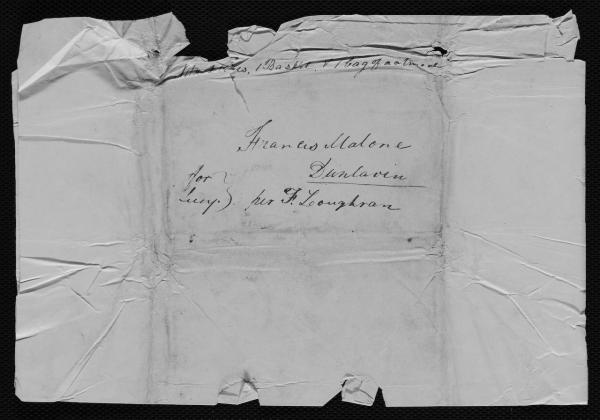 1 Basket, & 1 bag of oatmeal
Francis Malone
Dunlavin
for
Lucy. } per F. Loughran